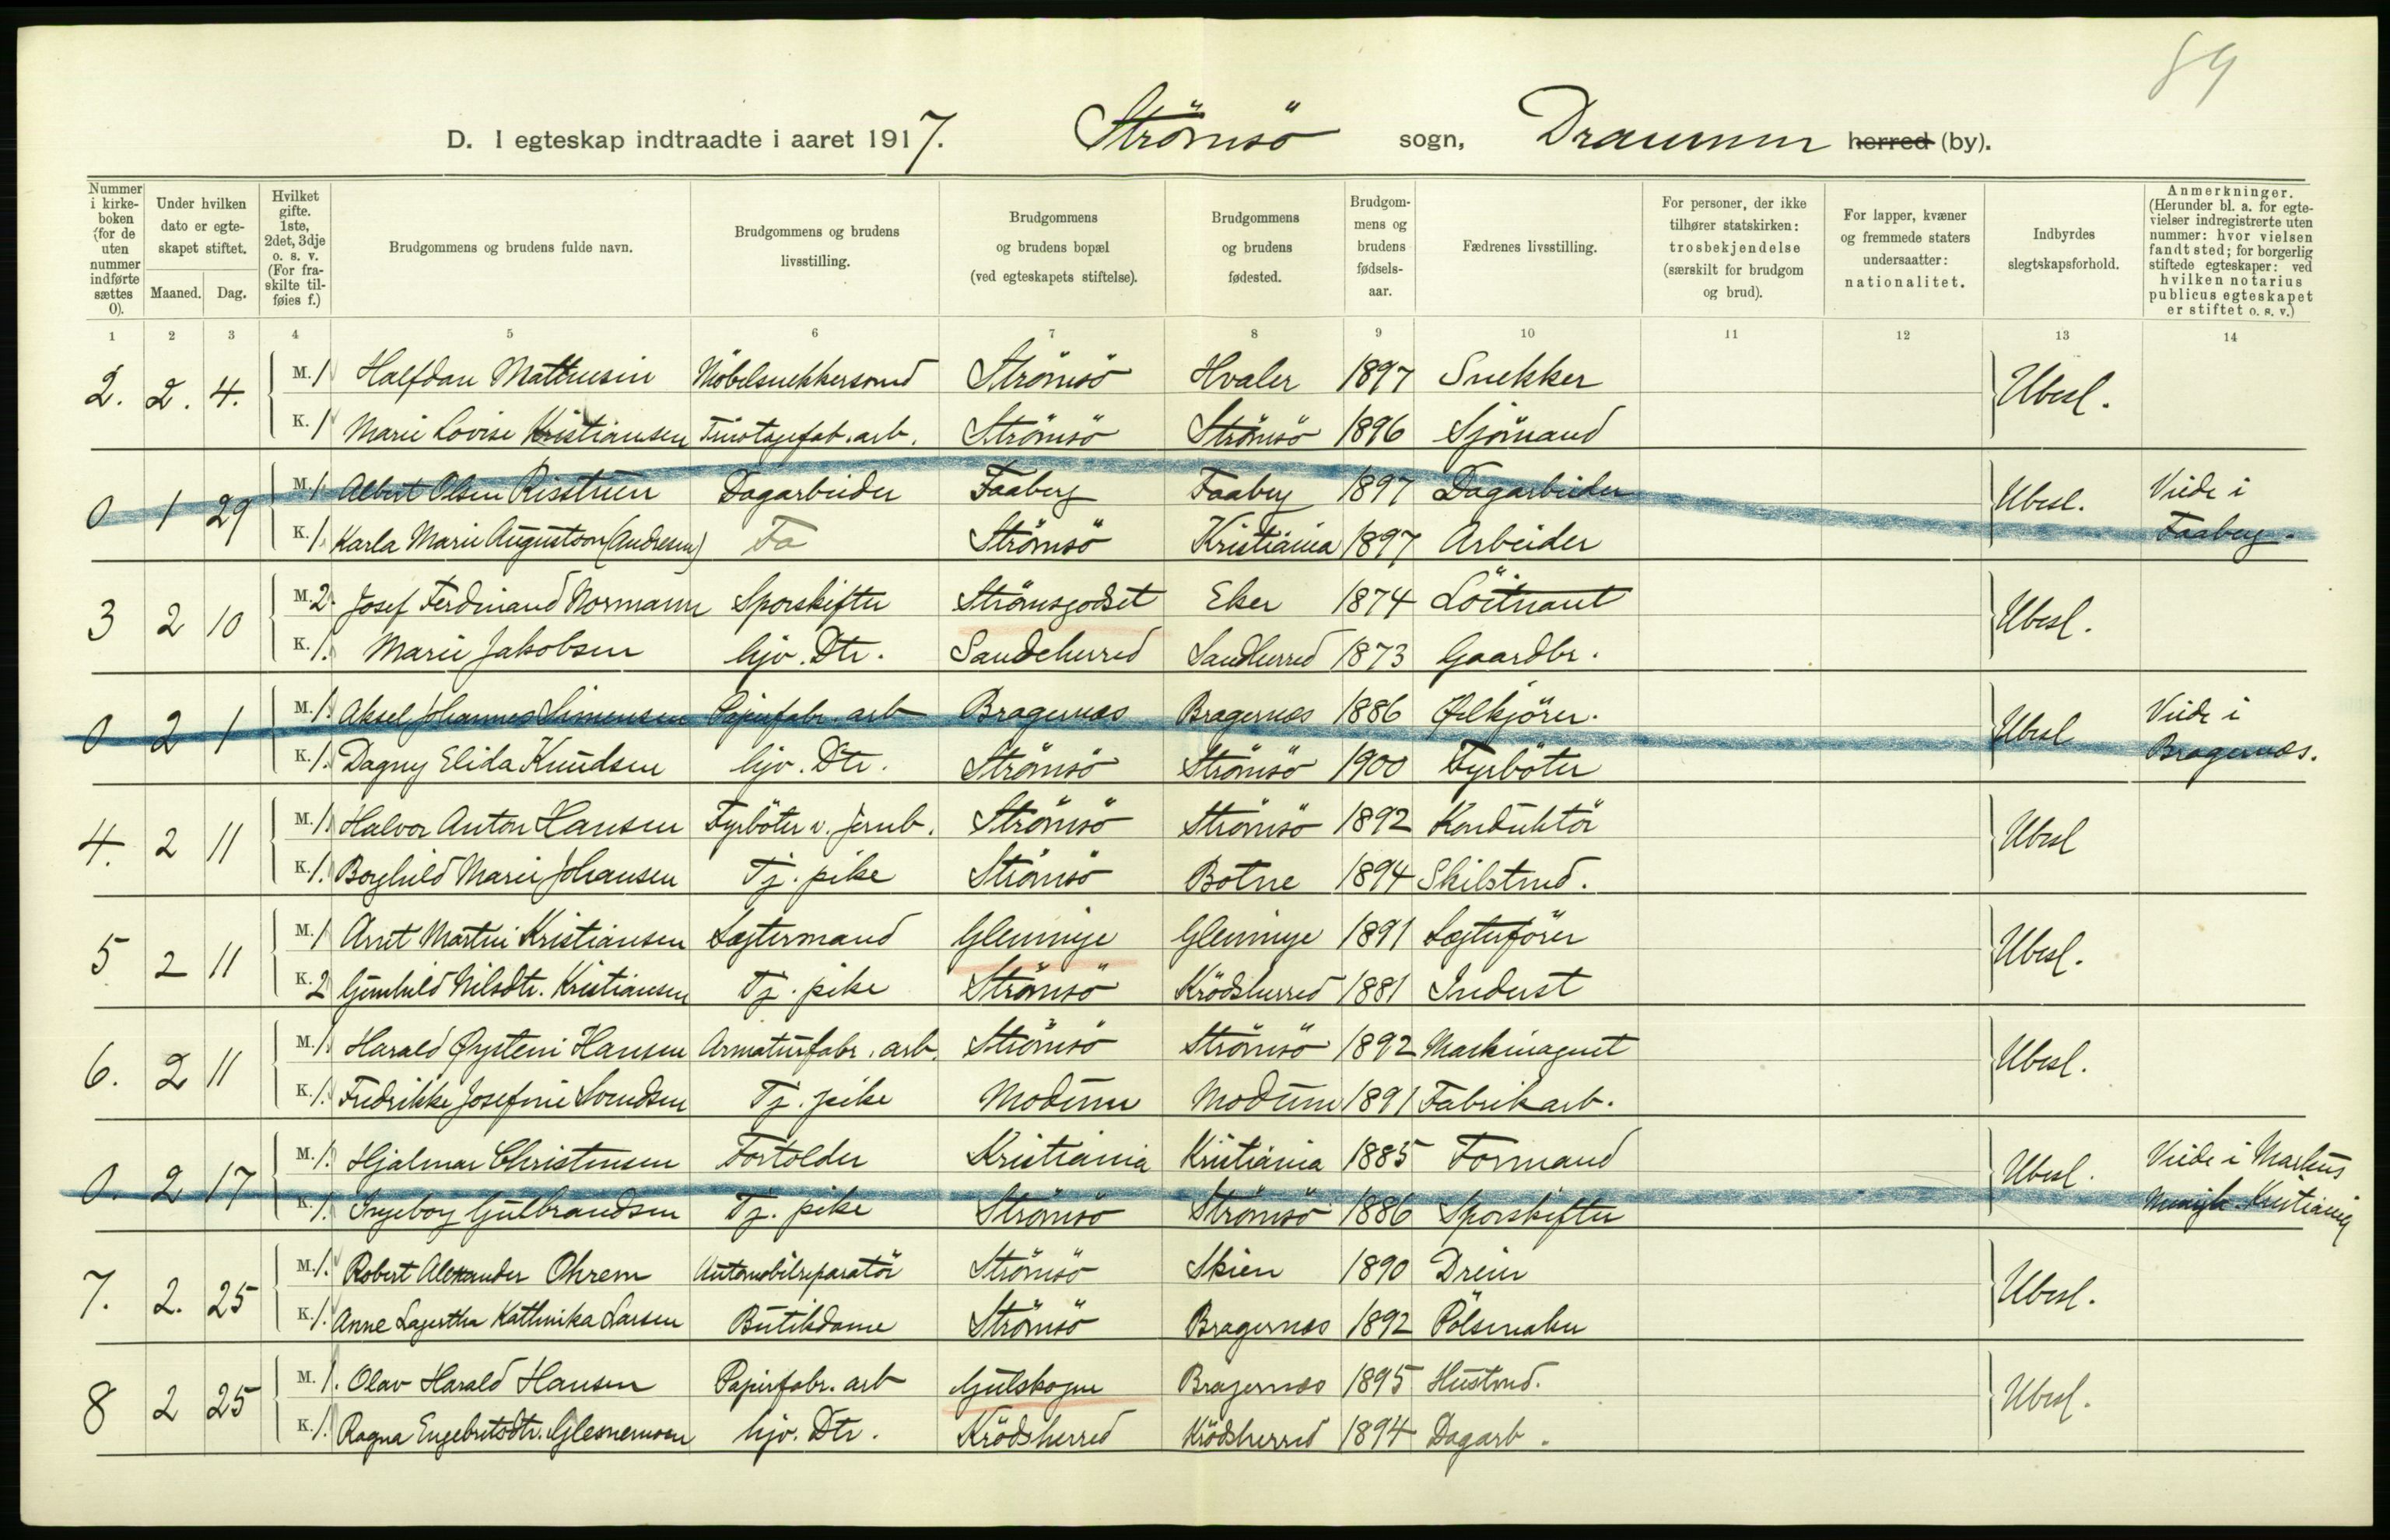 89
D. I egteskap indtraadte i aaret 1917. Strömsö sogn, Drammen herred (by).
Nummer i kirkeboken (for de uten nummer indførte sættes 0).
Under hvilken dato er egteskapet stiftet.
Maaned. Dag.
Hvilket gifte. 1ste, 2det, 3dje o. s. v. (For fraskilte tilføies f.)
Brudgommens og brudens fulde navn.
Brudgommens og brudens livsstilling.
Brudgommens og brudens bopæl (ved egteskapets stiftelse).
Brudgommens og brudens fødested.
Brudgommens og brudens fødselsaar.
Fædrenes livsstilling.
For personer, der ikke tilhører statskirken: trosbekjendelse (særskilt for brudgom og brud).
For lapper, kvæner og fremmede staters undersaatter: nationalitet.
Indbyrdes slegtskapsforhold.
Anmerkninger. (Herunder bl. a. for egtevielser indregistrerte uten nummer: hvor vielsen fandt sted; for borgerlig stiftede egteskaper: ved hvilken notarius publicus egteskapet er stiftet o. s. v.)
1 2 3 4 5 6 7 8 9 10 11 12 13 14
2. 2. 4. M. 1 Halfdan Mathisen Möbelsnekkersvend Strömsö Hvaler 1897 Snekker Ubesl.
K. 1 Marie Lovise Kristiansen Tricotagefab. arb. Strömsö Strömsö 1896 Sjömand
0 1 29 M. 1. Albert Olsen Dagarbeider Faaberg Faaberg 1897 Dagarbeider Ubesl. Viede i
K. 1. Karla Marie Augustson (Andresen) Fa Strömsö Kristiania 1897 Arbeider Faaberg.
3 2 10 M. 2. Josef Ferdinand Normann Sporskifter Strömsgodset Eker 1874 Löitnant Ubesl.
K. 1. Marie Jakobsen hjv. Dtr. Sandeherred Sandherred 1873 Gaardbr.
0 2 1 M. 1. Aksel Johannes Simensen Papirfabr. arb Bragernæs Bragernæs 1886 Ølkjörer. Ubesl Viede i
K. 1. Dagny Elida Knudsen hjv. Dtr. Strömsö Strömsö 1900 Fyrböter Bragernæs.
4. 2 11 M. 1. Halvor Anton Hansen Fyrböter v. jernb. Strömsö Strömsö 1892 Konduktör Ubesl
K. 1. Borghild Marie Johansen Tj. pike Strömsö Botne 1894 Skibstmd.
5 2 11 M. 1 Arnt Martin Kristiansen Lægtermand Glemminge Glemminge 1891 Lægterförer Ubesl.
K. 2 Gunhild Nilsdtr. Kristiansen Tj. pike Strömsö Krödsherred 1881 Inderst
6. 2 11 M. 1. Harald Øystein Hansen Armaturfabr. arb. Strömsö Strömsö 1892 Maskinagent Ubesl.
K. 1. Fredrikke Josefine Svendsen Tj. pike Modum Modum 1891 Fabrikarb.
0. 2 17 M. 1. Hjalmar Christensen Fortolder Kristiania Kristiania 1885 Formand Ubesl. Viede i Markus
K. 1. Ingeborg Gulbrandsen Tj. pike Strömsö Strömsö 1886 Sporskifter Menigh. Kristiania
7. 2. 25 M. 1. Robert Alexander Ohrem Automobilreparatör Strömsö Skien 1890 Dreier Ubesl.
K. 1. Anne Lagertha Kathinka Larsen Butikdame Strömsö Bragernæs 1892 Pölsemaker
8 2 25 M. 1. Olav Harald Hansen Papirfabr. arb Gulskogen Bragernæs 1895 Hustmd. Ubesl.
K. 1. Ragna Engebretsdtr. Glesnemoen hjv. Dtr. Krödsherred Krödsherred 1894 Dagarb.